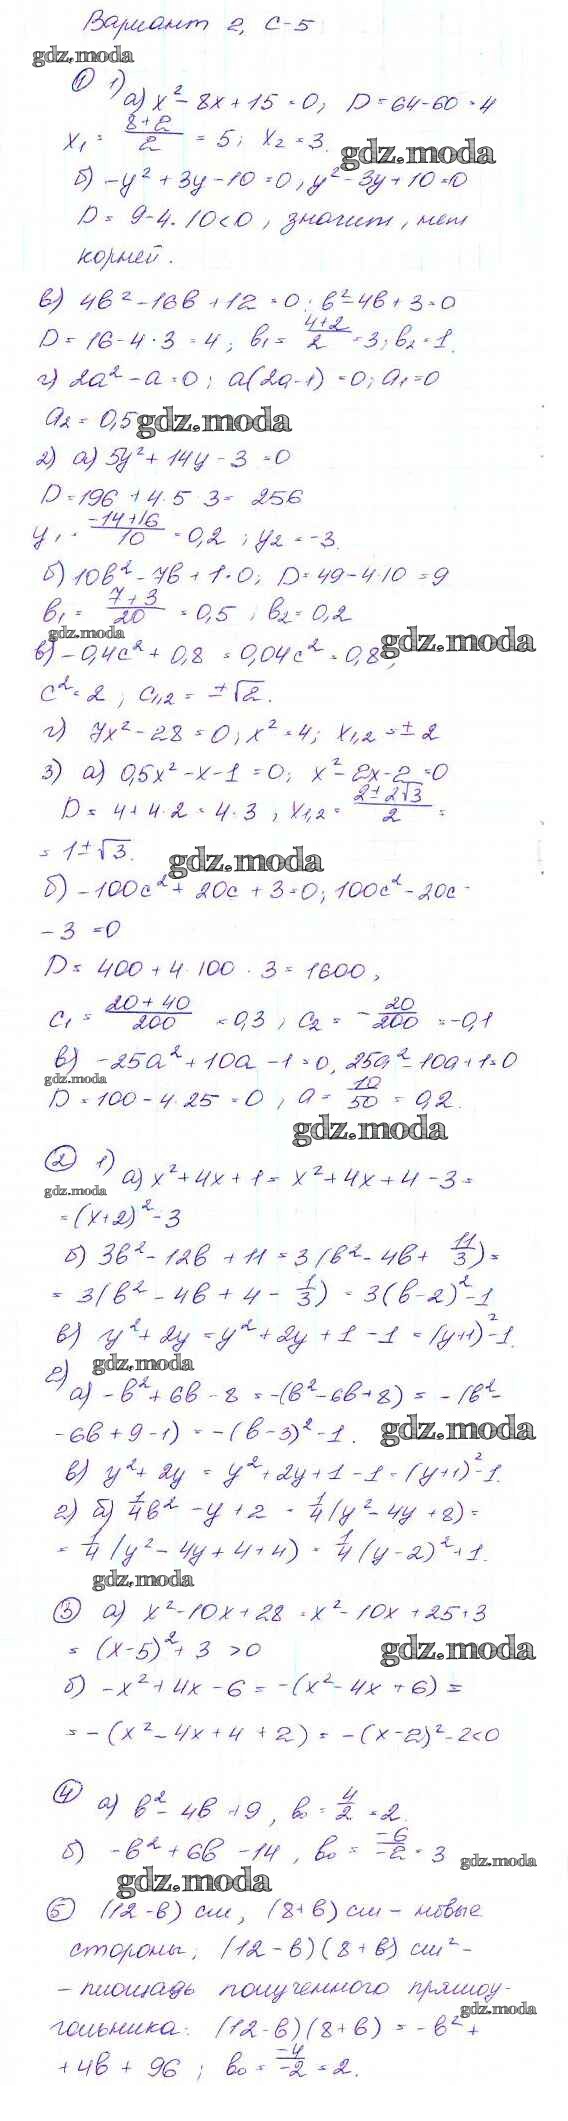 Вариант 2, С-5
gdz.moda
① 1)
а) x² - 8x + 15 = 0; D = 64 - 60 = 4
x₁ = (8+2)/2 = 5; x₂ = 3.
gdz.moda
б) -y² + 3y - 10 = 0, y² - 3y + 10 = 0
D = 9 - 4·10 < 0, значит, нет
корней.
в) 4b² - 16b + 12 = 0; b² - 4b + 3 = 0
D = 16 - 4·3 = 4; b₁ = (4+2)/2 = 3; b₂ = 1.
г) 2a² - a = 0; a(2a-1) = 0; a₁ = 0
a₂ = 0,5
gdz.moda
2) а) 5y² + 14y - 3 = 0
D = 196 + 4·5·3 = 256
y₁ = (-14+16)/10 = 0,2; y₂ = -3.
б) 10b² - 7b + 1 = 0; D = 49 - 4·10 = 9
b₁ = (7+3)/20 = 0,5; b₂ = 0,2
gdz.moda
gdz.moda
в) -0,4c² + 0,8 = 0,04c² = 0,8;
c² = 2; c₁,₂ = ±√2.
г) 7x² - 28 = 0; x² = 4; x₁,₂ = ± 2
3) а) 0,5x² - x - 1 = 0; x² - 2x - 2 = 0
D = 4 + 4·2 = 4·3; x₁,₂ = (2±2√3)/2 =
= 1±√3.
gdz.moda
б) -100c² + 20c + 3 = 0; 100c² - 20c -
- 3 = 0
D = 400 + 4·100·3 = 1600,
c₁ = (20+40)/200 = 0,3; c₂ = -20/200 = -0,1
в) -25a² + 10a - 1 = 0, 25a² - 10a + 1 = 0
gdz.moda
D = 100 - 4·25 = 0; a = 10/50 = 0,2.
gdz.moda
② 1)
а) x² + 4x + 1 = x² + 4x + 4 - 3 =
gdz.moda
= (x+2)² - 3
б) 3b² - 12b + 11 = 3(b² - 4b + 11/3) =
= 3(b² - 4b + 4 - 1/3) = 3(b-2)² - 1
в) y² + 2y = y² + 2y + 1 - 1 = (y+1)² - 1.
gdz.moda
2)
а) -b² + 6b - 8 = -(b² - 6b + 8) = -(b² -
- 6b + 9 - 1) = -(b-3)² - 1.
gdz.moda
в) y² + 2y = y² + 2y + 1 - 1 = (y+1)² - 1.
2) б) 1/4b² - y + 2 = 1/4(y² - 4y + 8) =
= 1/4(y² - 4y + 4 + 4) = 1/4(y-2)² + 1.
gdz.moda
③ а) x² - 10x + 28 = x² - 10x + 25 + 3
= (x-5)² + 3 > 0
gdz.moda
б) -x² + 4x - 6 = -(x² - 4x + 6) =
= -(x² - 4x + 4 + 2) = -(x-2)² - 2 < 0
④ а) b² - 4b + 9, b₀ = 4/2 = 2.
б) -b² + 6b - 14, b₀ = -6/-2 = 3
gdz.moda
gdz.moda
⑤ (12-b) см, (8+b) см - новые
стороны; (12-b)(8+b) см² -
- площадь полученного прямоу-
gdz.moda
гольника: (12-b)(8+b) = -b² +
+ 4b + 96; b₀ = -4/-2 = 2.